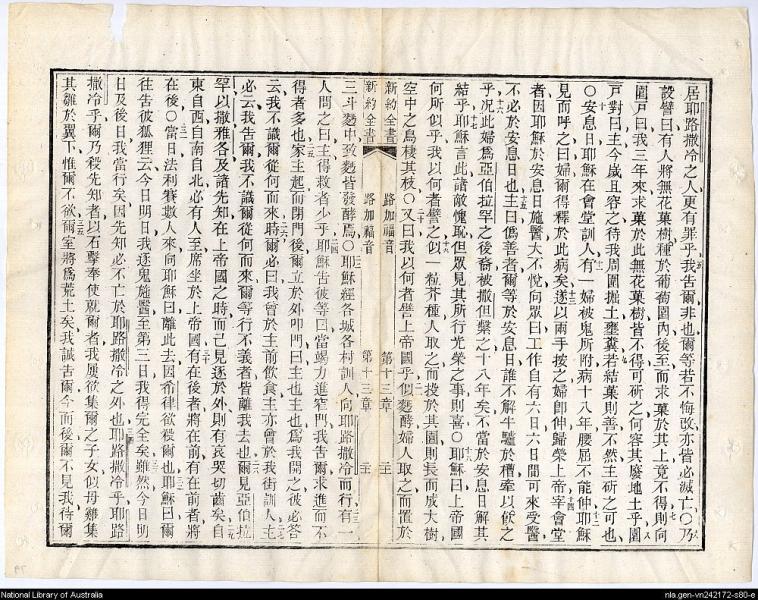 居耶路撒冷之人更有罪乎我告爾非也爾等若不悔改亦皆必滅亡〇乃
設譬曰有人將無花菓樹種於葡萄園內後至而求菓於其上竟不得則向
園戶曰我三年來求菓於此無花菓樹皆不得可斫之何容其廢地土乎園
戶對曰主今歲且容之待我周圍掘土壅糞若結菓則善不然主斫之可也
〇安息日耶穌在會堂訓人有一婦被鬼所附病十八年腰屈不能伸耶穌
見而呼之曰婦爾得釋於此病矣遂以兩手按之婦卽伸歸榮上帝宰會堂
者因耶穌於安息日施醫大不悅向眾曰工作自有六日六日間可來受醫
不必於安息日也主曰僞善者爾等於安息日誰不解牛驢於槽牽以飲之
乎況此婦爲亞伯拉罕之後裔被撒但繫之十八年矣不當於安息日解其
結乎耶穌言此諸敵愧恥但眾見其所行光榮之事則喜〇耶穌曰上帝國
何所似乎我以何者譬之似一粒芥種人取之而投於其園則長而成大樹
空中之鳥棲其枝〇又曰我以何者譬上帝國乎似麪酵婦人取之而置於
新約全書 路加福音 第十三章
新約全書 路加福音 第十三章
三斗麪中致麪皆發酵焉〇耶穌經各城各村訓人向耶路撒冷而行有一
人問之曰主得救者少乎耶穌告彼等曰當竭力進窄門我告爾求進而不
得者多也家主起而閉門後爾立於外叩門曰主也主也爲我開之彼必答
云我不識爾從何而來時爾必曰我曾於主前飲食主亦曾於我街訓人主
必云我告爾我不識爾從何而來爾等行不義者皆離我去也爾見亞伯拉
罕以撒雅各及諸先知在上帝國之時而己見逐於外則有哀哭切齒矣自
東自西自南自北必有人至席坐於上帝國有在後者將在前有在前者將
在後〇當日法利賽數人來向耶穌曰離此去因希律欲殺爾也耶穌曰爾
往告彼狐狸云今日明日我逐鬼施醫至第三日我得完全矣雖然今日明
日及後日我當行矣因先知必不亡於耶路撒冷之外也耶路撒冷乎耶路
撒冷乎爾乃殺先知者以石擊奉使就爾者我屢欲集爾之子女似母雞集
其雛於翼下惟爾不欲爾室將爲荒土矣我誠告爾今而後爾不見我待爾
National Library of Australia
nla.gen-vn242172-s80-e